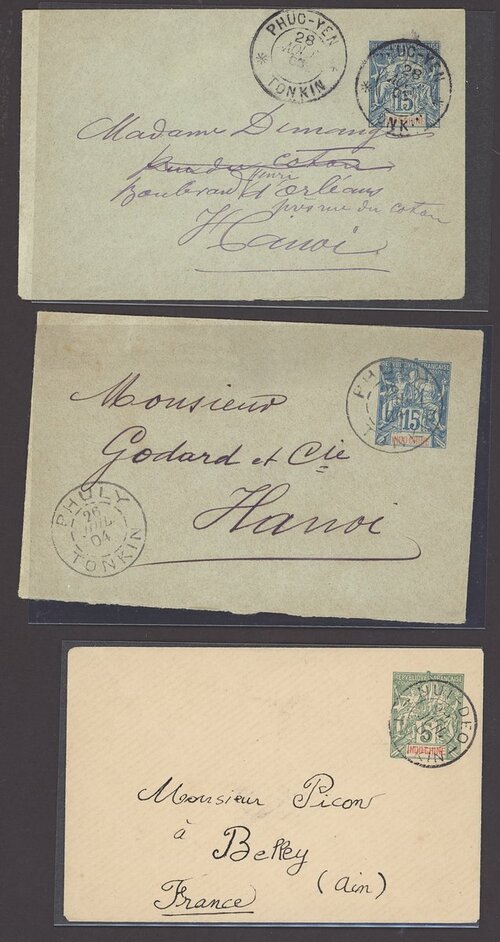 PHUC-YEN
28
04
TONKIN
PHUC-YEN
28
04
15
Madame Demange
rue du coton
Henri
Boulevard d'Orléans
près rue du coton
Hanoi
REPUBLIQUE FRANCAISE
15
INDO-CHINE
Monsieur
Godard et Cie
Hanoi
PHULY
26
JUIL
04
TONKIN
REPUBLIQUE FRANCAISE
5
INDO-CHINE
Monsieur Picon
à
Belley
(Ain)
France